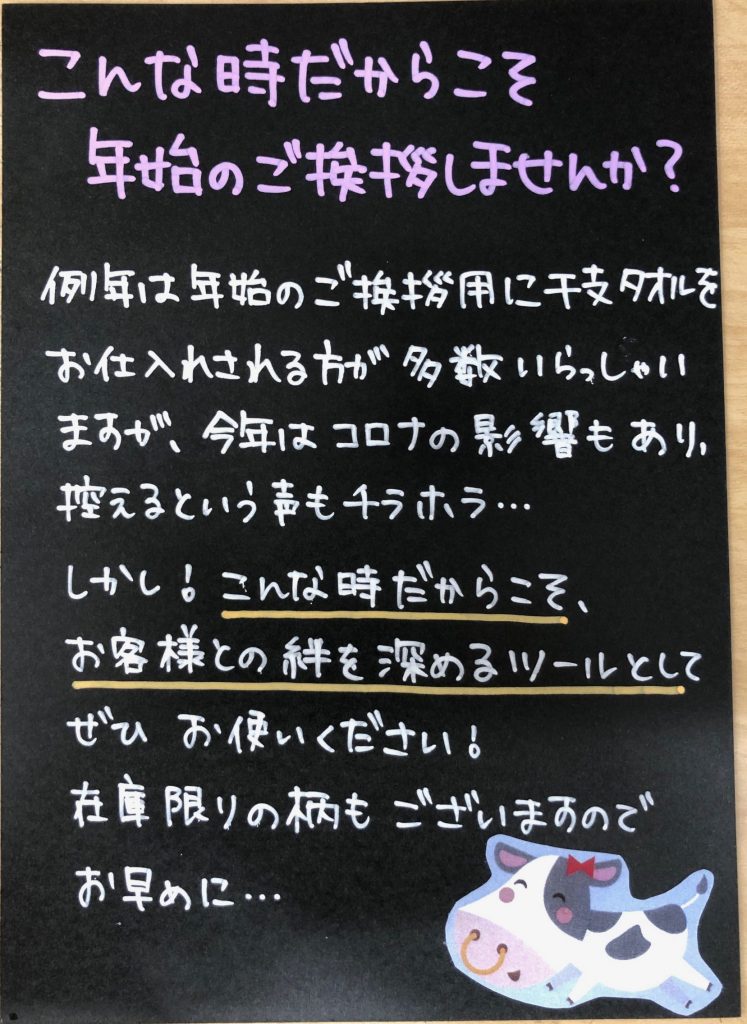 こんな時だからこそ
年始のご挨拶しませんか?
例年は年始のご挨拶用に干支タオルを
お仕入れされる方が多数いらっしゃい
ますが、今年はコロナの影響もあり、
控えるという声もチラホラ…
しかし!こんな時だからこそ、
お客様との絆を深めるツールとして
ぜひ お使いください!
在庫限りの柄もございますので
お早めに…